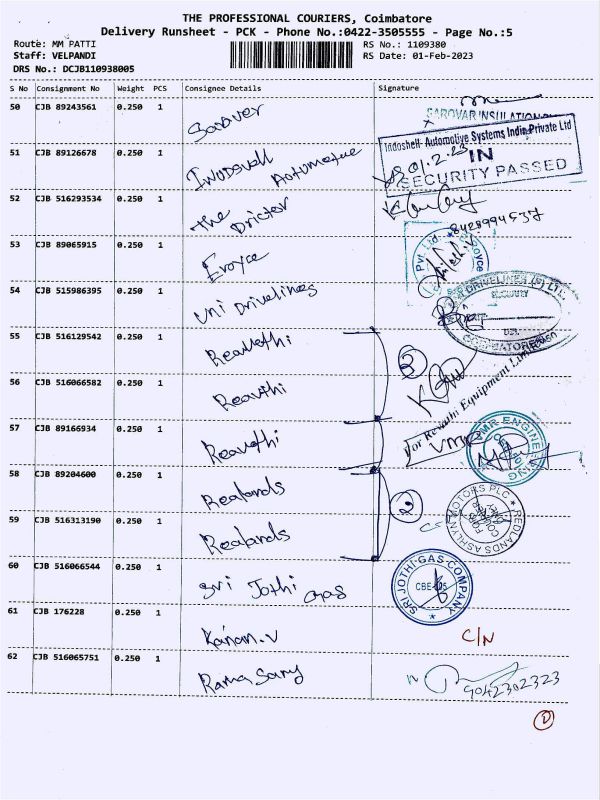 THE PROFESSIONAL COURIERS, Coimbatore
Delivery Runsheet - PCK - Phone No.:0422-3505555 - Page No.:5
Route: MM PATTI RS No.: 1109380
Staff: VELPANDI RS Date: 01-Feb-2023
DRS No.: DCJB110938005
S No Consignment No Weight PCS Consignee Details Signature
50 CJB 89243561 0.250 1 Sarver
SAROVAR INSULATION
51 CJB 89126678 0.250 1
Indoshell Automotive Systems India Private Ltd
01.2.23
IN
SECURITY PASSED
52 CJB 516293534 0.250 1 The Drictor
8428994537
53 CJB 89065915 0.250 1 Eroyce
Pvt. Ltd. Royce
54 CJB 515986395 0.250 1 Uni Drivelines
DRIVELINES (P) LTD.
SECURITY
COIMBATORE
55 CJB 516129542 0.250 1
3
56 CJB 516066582 0.250 1 Reavthi
For Revathi Equipment Limited
57 CJB 89166934 0.250 1
VMR
VMR ENGINEERING
58 CJB 89204600 0.250 1 Realands
2
59 CJB 516313190 0.250 1 Realands
REDLANDS ASHLYN MOTORS PLC
60 CJB 516066544 0.250 1 Sri Jothi Gas
SRI JOTHI GAS COMPANY
CBE-105
61 CJB 176228 0.250 1 Kanan.V C/N
62 CJB 516065751 0.250 1 Rama Samy 9042302323